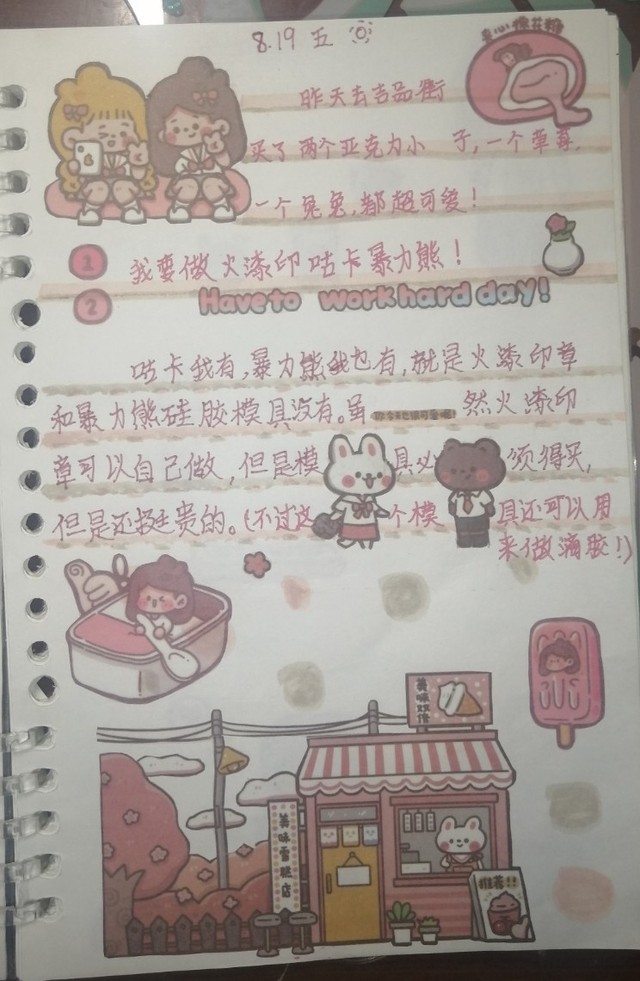 8.19 五
夹心棉花糖
昨天去吉品街
买了两个亚克力小 子,一个草莓,
一个兔兔,都超可爱!
1 我要做火漆印咕卡暴力熊!
2 Have to work hard day!
咕卡我有,暴力熊我也有,就是火漆印章
和暴力熊硅胶模具没有。虽 然火漆印
章可以自己做,但是模 具必 须得买,
但是还挺贵的。(不过这 个模 具还可以用
来做滴胶!)
美味双倍
美味雪糕店
推荐!!